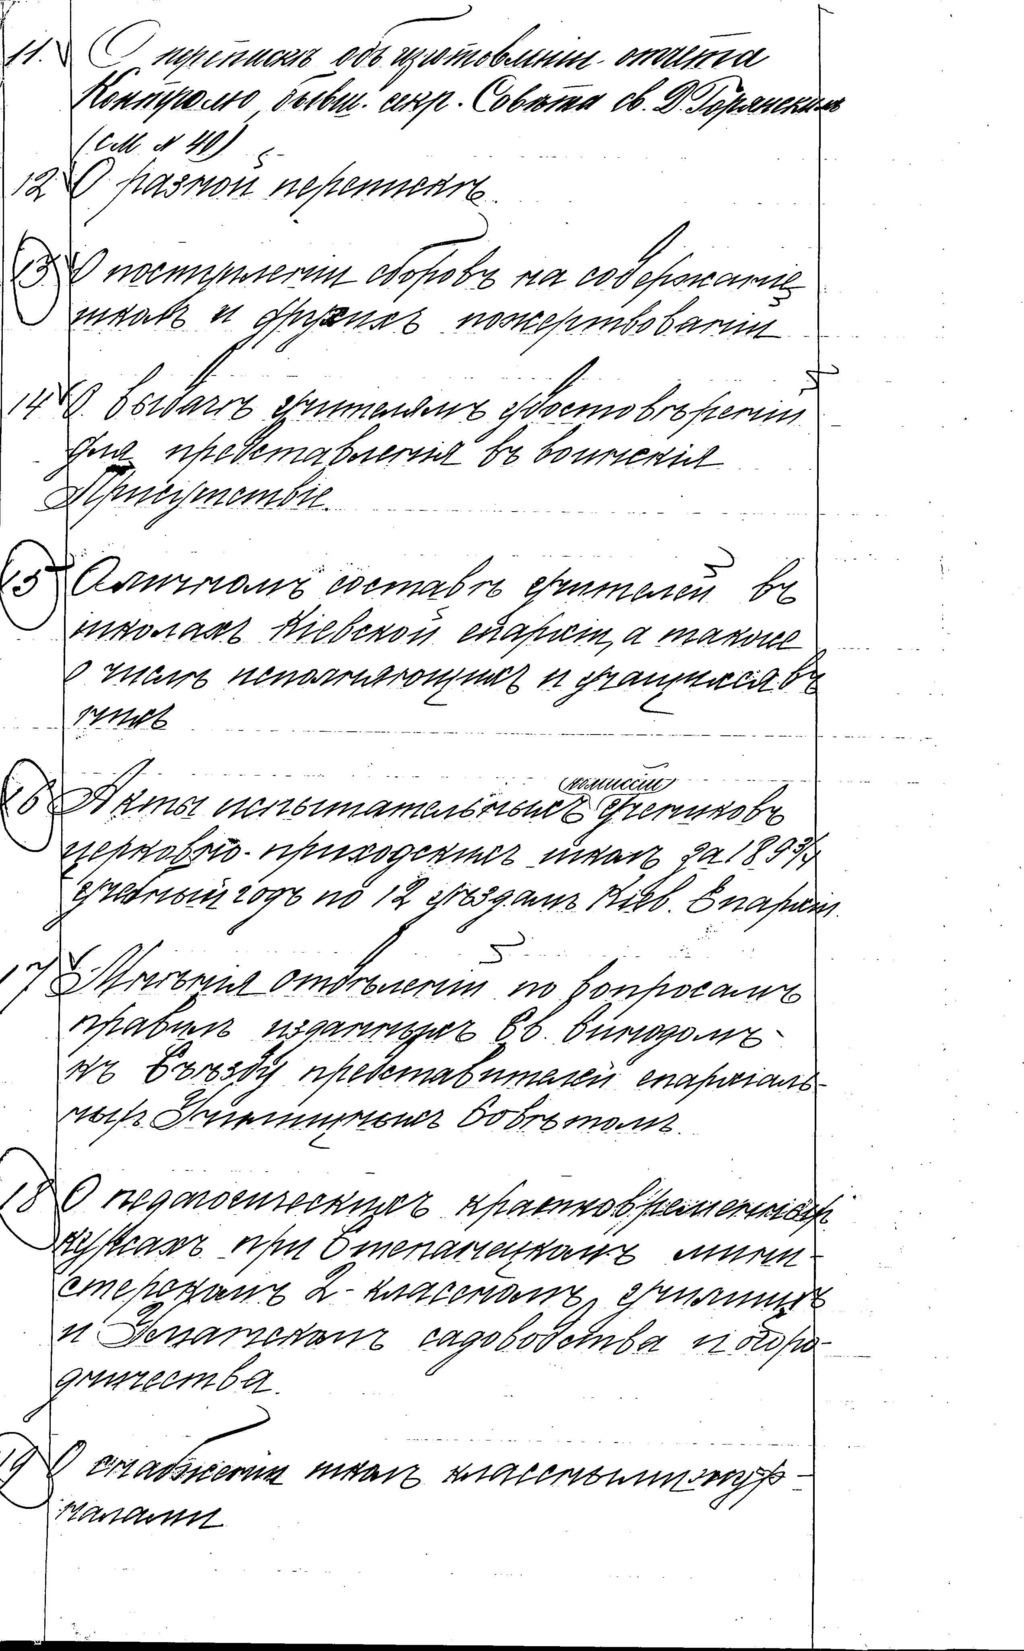 11. О перепискѣ объ изготовленіи отчета
Контролю бывш. секр. Совѣта св. Д. Горянскимъ
(см. № 40)
12 О разной перепискѣ.
13 О поступленіи сборовъ на содержаніе
школъ и другихъ пожертвованій
14 О выдачѣ учителямъ удостовѣреній
для представленія въ воинскія
Присутствіе.
15 О личномъ составѣ учителей въ
школахъ Кіевской епархіи, а также
о числѣ исполняющихъ и учащихся въ
нихъ
комиссій
16 Акты испытательныхъ учениковъ
церковно-приходскихъ школъ за 1893/4
учебный годъ по 12 уѣздамъ Кіев. Епархіи
17 Мнѣнія отдѣленій по вопросамъ
правилъ изданныхъ Св. Синодомъ
къ Съѣзду представителей епархіаль-
ныхъ Училищныхъ Совѣтомъ.
18 О педагогическихъ кратковременныхъ
курсахъ при Степанецкомъ мини-
стерскомъ 2-классномъ училищѣ
и Уманскомъ садоводства и огоро-
дничества.
19 О снабженіи школъ классными жур-
налами